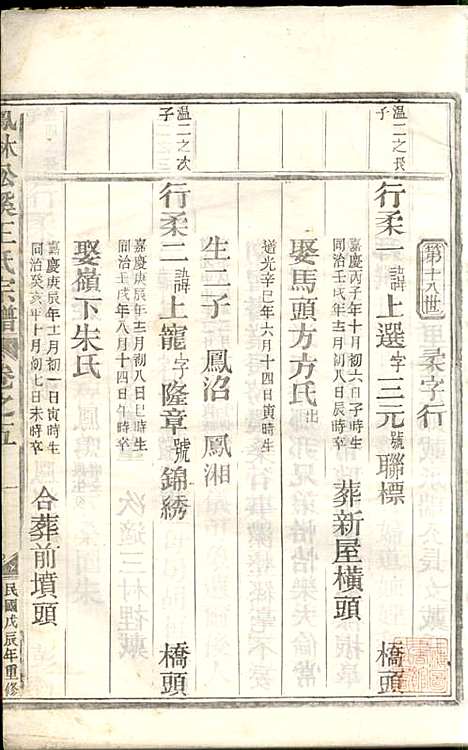 第十八世
柔字行
溫二之長子
行柔一 諱上選字三元號聯標 橋頭
嘉慶丙子年十月初六日子時生
同治壬戌年十二月初八日辰時卒
葬新屋橫頭
娶馬頭方方氏出
道光辛巳年六月十四日寅時生
生二子 鳳沼 鳳湘
溫二之次子
行柔二 諱上寵字隆章號錦綉 橋頭
嘉慶庚辰年十二月初八日巳時生
同治壬戌年八月十四日午時卒
娶嶺下朱氏
嘉慶庚辰年十二月初一日寅時生
同治癸亥年十月初七日未時卒
合葬前墳頭
鳳林松溪王氏宗譜
卷之五
一
民國戊辰年重修